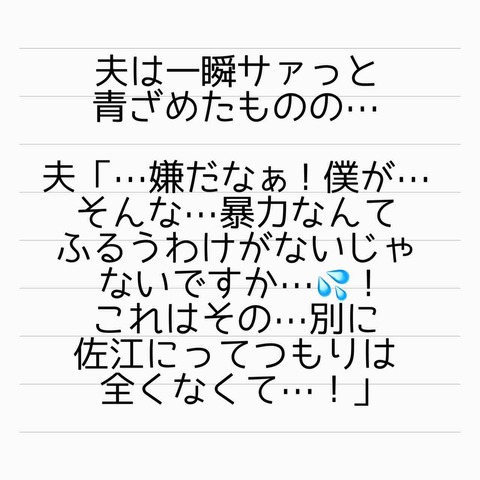 夫は一瞬サァっと
青ざめたものの…
夫「…嫌だなぁ！僕が…
そんな…暴力なんて
ふるうわけがないじゃ
ないですか…💦！
これはその…別に
佐江にってつもりは
全くなくて…！」